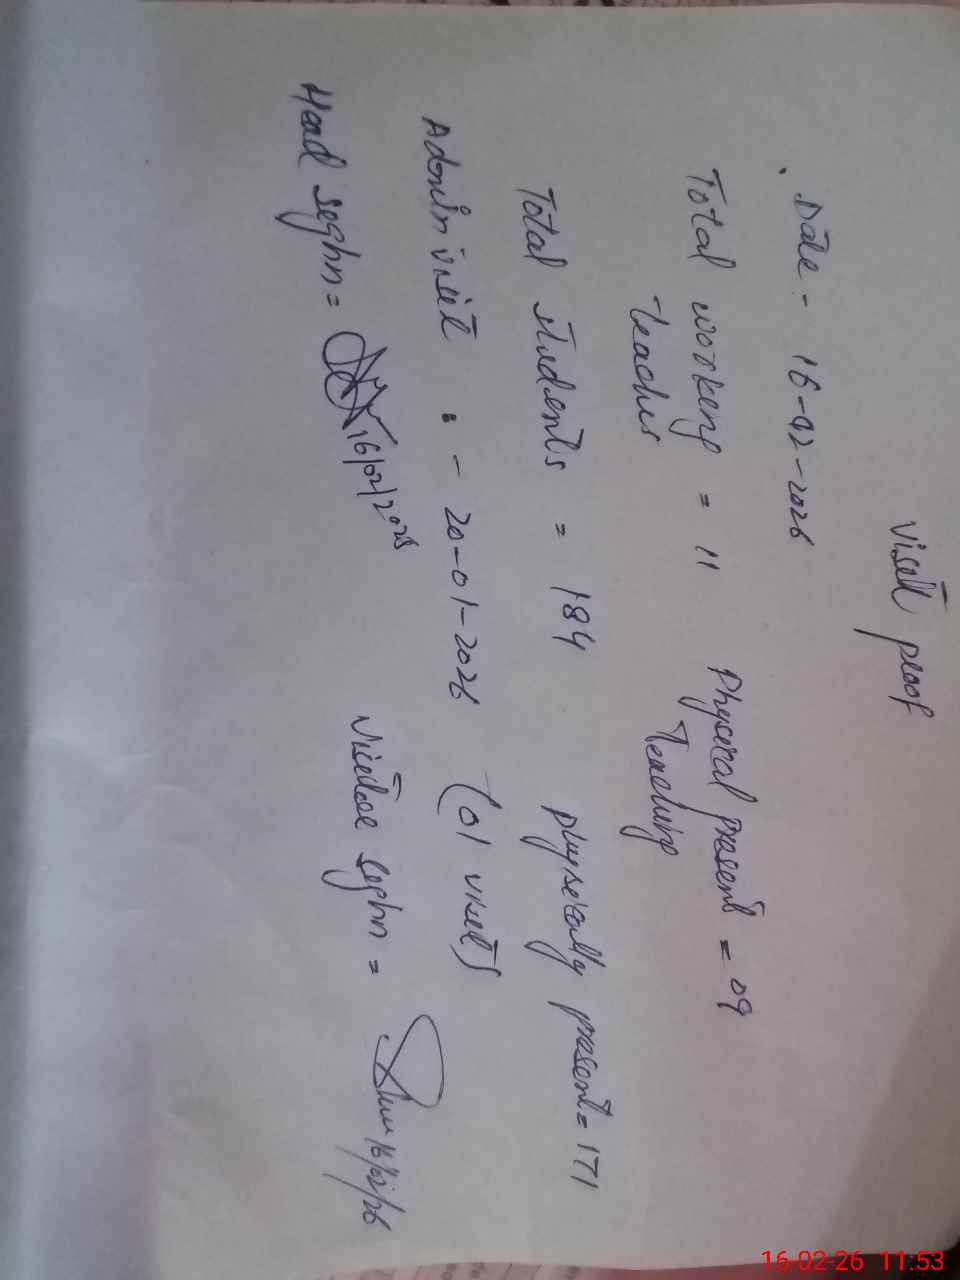 Visit proof
Date - 16-02-2026
Total workenp = 11 Physical present = 09
teacher Teachinp
Total students = 184 physically present = 171
Admin visit : - 20-01-2026 (01 visit)
Head seghn = 16/02/2026 visitoe seghn = 16/02/26
16-02-26 11:53